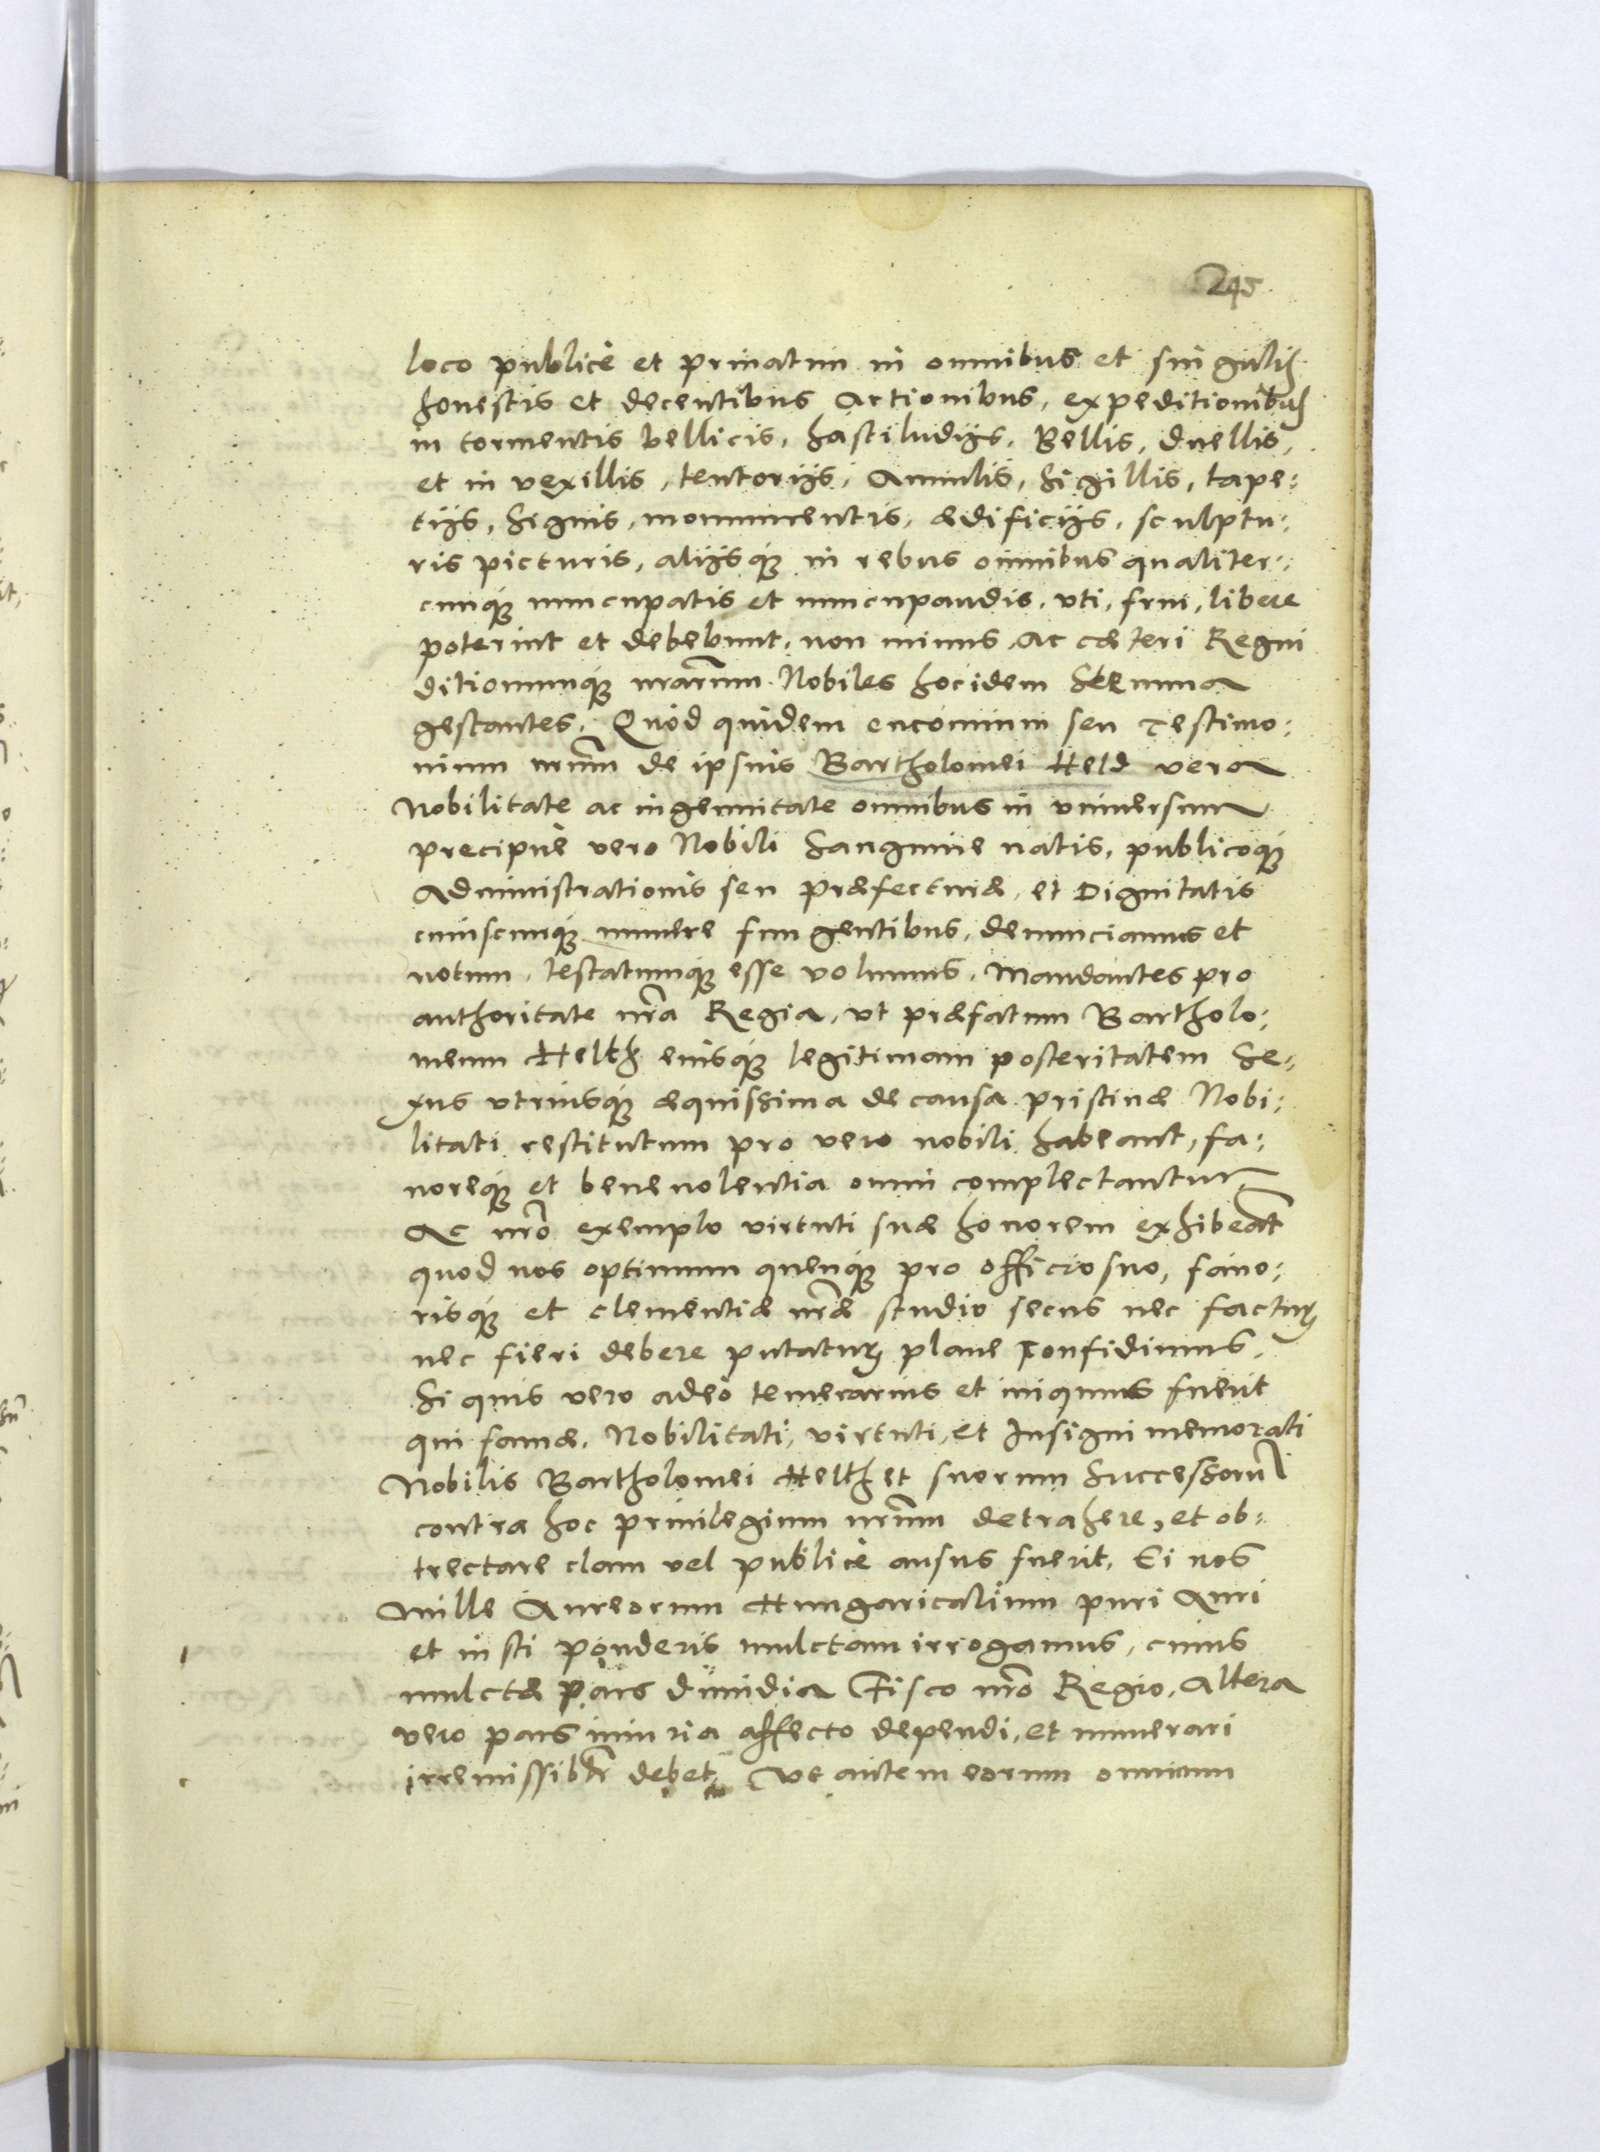 245
loco publicè et priuatim in omnibus et singulis
honestis et decentibus Actionibus, expeditionibus
in tormentis bellicis, hastiludijs, Bellis, duellis,
et in vexillis, tentorijs, Annulis, Sigillis, tape:
tijs, Signis, monumentis, ædificijs, sculptu:
ris picturis, alijsq́ue in rebus omnibus qualiter:
cunq́ue nuncupatis et nuncupandis, vti, frui, libere
poterint et debebunt, non minus, Ac cæteri Regni
ditionumq́ue nrarum Nobiles hoc idem Stemma
gestantes. Quòd quidem encomium seu testimo:
nium nrum de ipsius Bartholomei Held vera
Nobilitate ac ingenuitate omnibus in vniuersum
precipuè vero Nobili Sanguine natis, publicoq́ue
Administrationis seu præfecturæ, et Dignitatis
cuiuscunq́ue munere fungentibus, denunciamus et
notum, testatumq́ue esse volumus, Mandantes pro
authoritate nra Regia, vt præfatum Bartholo:
meum Helth eiusq́ue legitimam posteritatem Se:
xus vtriusq́ue æquissima de causa pristinæ Nobi:
litati restitutum pro vero nobili habeant, fa:
uoreq́ue et beneuolentia omni complectantur
Ac nro exemplo virtuti suæ honorem exhibeant
quod nos optimum quenq́ue pro officio suo, fauo:
risq́ue et clementiæ nræ studio secus nec facturum
nec fieri debere putaturum plane confidimus.
Si quis vero adeò temerarius et iniquus fuerit
qui famæ, Nobilitati, virtuti, et Insigni memorati
Nobilis Bartholomei Helth et suorum Successorum
contra hoc priuilegium nrum detrahere, et ob:
trectare clam vel publicè ausus fuerit, Ei nos
Mille Aureorum Hungaricalium puri Auri
et iusti ponderis mulctam irrogamus, cuius
mulctæ pars dimidia Fisco nro Regio, Altera
vero pars iniuria affecto dependi, et numerari
irremissibtr debet, Vt autem eorum omnium